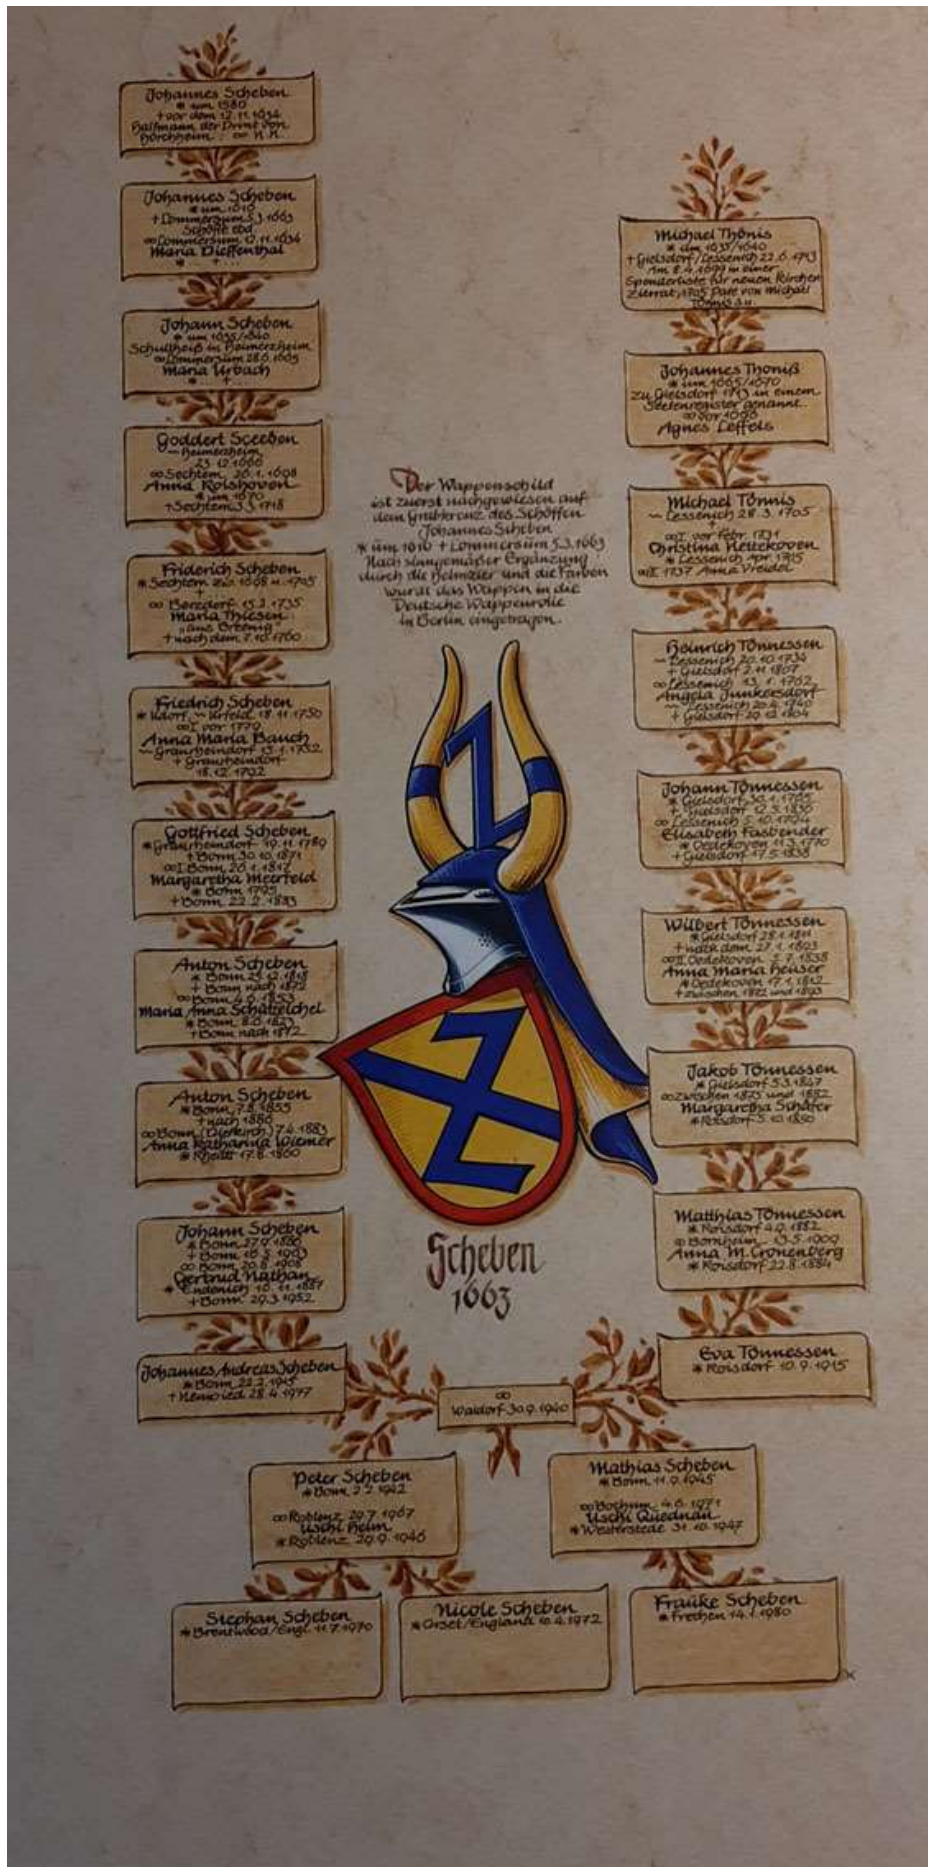 Johannes Scheben
* um 1580
+ vor dem 12.11.1634
Halfmann der Drint von
∞ N.N.
Johannes Scheben
* um 1610
+ Lommersum 5.3.1663
Schöffe ebd.
∞ Lommersum 12.11.1634
Maria Dieffenthal
* ... + ...
Johann Scheben
* um 1635/1640
Schultheiß in Heimerzheim
∞ Lommersum 28.6.1665
Maria Urbach
* ... + ...
Goddert Sceeben
~ Heimerzheim
23.12.1666
∞ Sechtem 26.1.1698
Anna Rolshoven
* um 1670
+ Sechtem 3.3.1718
Friderich Scheben
* Sechtem zw. 1698 u. 1705
+
∞ Berzdorf 15.2.1735
Maria Thiesen
"aus Brenig"
+ nach dem 7.10.1760
Friedrich Scheben
* Udorf, ~ Urfeld 18.11.1750
∞ I vor 1779
Anna Maria Bauch
~ Graurheindorf 13.1.1752
+ Graurheindorf
18.12.1792
Gottfried Scheben
* Graurheindorf 19.11.1789
+ Bonn 30.10.1871
∞ I Bonn 26.1.1817
Margaretha Meerfeld
* Bonn 1795
+ Bonn 22.2.1883
Anton Scheben
* Bonn 25.12.1818
+ Bonn nach 1872
∞ Bonn 4.6.1853
Maria Anna
* Bonn 8.6.1823
+ Bonn nach 1872
Anton Scheben
* Bonn 7.8.1855
+ nach 1886
∞ Bonn 7.4.1883
Anna Katharina Wiemer
* Rheidt 17.8.1860
Johann Scheben
* Bonn 27.9.1886
+ Bonn 16.5.1963
∞ Bonn 20.8.1908
Gertrud Nathan
* Endenich 16.11.1887
+ Bonn 29.3.1952
Johannes Andreas Scheben
* Bonn 22.2.1915
+ Neuwied 28.4.1977
Der Wappenschild
ist zuerst nachgewiesen auf
dem Grabkreuz des Schöffen
Johannes Scheben
* um 1610 + Lommersum 5.3.1663
Nach sinngemäßer Ergänzung
durch die Helmzier und die Farben
wurde das Wappen in die
Deutsche Wappenrolle
in Berlin eingetragen.
Scheben
1663
Michael Thönis
* um 1635/1640
+ Gielsdorf/Lessenich 22.6.1713
Am 8.4.1699 in einer
Spenderliste für neuen Kirchen
Zierrat, 1705 Pate von Michael
Tönnis s.u.
Johannes Thoniß
* um 1665/1670
Zu Gielsdorf 1713 in einem
Seelenregister genannt.
∞ vor 1696
Agnes Leffels
Michael Tönnis
~ Lessenich 28.3.1705
+
∞ I. vor Febr. 1731
Christina Nettekoven
* Lessenich Apr. 1715
∞ II. 1737 Anna Vreidel
Heinrich Tönnessen
~ Lessenich 20.10.1734
+ Gielsdorf 2.11.1807
∞ Lessenich 13.1.1762
Angela Junkersdorf
~ Lessenich 20.4.1740
+ Gielsdorf 29.12.1804
Johann Tönnessen
* Gielsdorf 30.1.1765
+ Gielsdorf 12.3.1836
∞ Lessenich 5.10.1794
Elisabeth Fasbender
* Oedekoven 11.3.1770
+ Gielsdorf 17.5.1838
Wilbert Tönnessen
* Gielsdorf 28.1.1811
+ nach dem 27.1.1893
∞ II. Oedekoven 5.7.1838
Anna Maria Heuser
* Oedekoven 17.1.1812
+ zwischen 1872 und 1893
Jakob Tönnessen
* Gielsdorf 5.3.1847
∞ zwischen 1875 und 1882
Margaretha Schäfer
* Roisdorf 5.10.1850
Matthias Tönnessen
* Roisdorf 4.9.1882
∞ Bornheim 13.5.1909
Anna M. Cronenberg
* Roisdorf 22.8.1884
Eva Tönnessen
* Roisdorf 10.9.1915
∞
Waldorf 30.9.1940
Peter Scheben
* Bonn 2.2.1942
∞ Koblenz 29.7.1967
Uschi Heim
* Koblenz 29.9.1946
Mathias Scheben
* Bonn 11.9.1945
∞ Bochum 4.6.1971
Uschi Quednau
* Westerstede 31.10.1947
Stephan Scheben
* Brentwood/Engl. 11.7.1970
Nicole Scheben
* Orset/England 16.4.1972
Frauke Scheben
* Frechen 14.1.1980